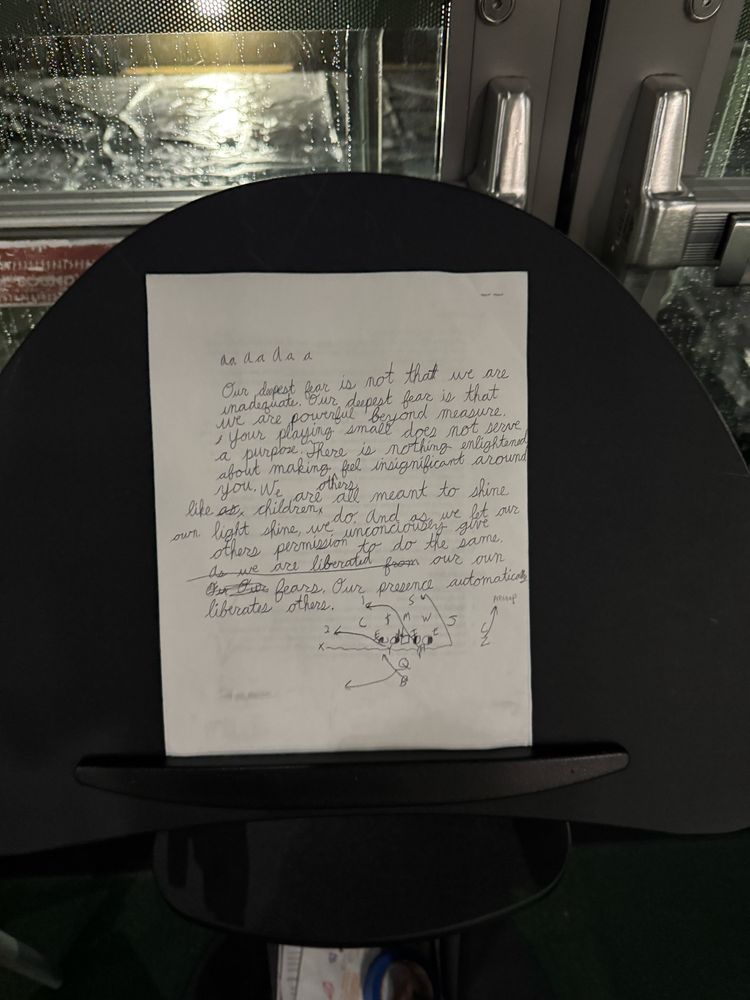 aa a a a a a
Our deepest fear is not that we are
inadequate. Our deepest fear is that
we are powerful beyond measure.
Your playing small does not serve
a purpose. There is nothing enlightened
about making feel insignificant around
others
you. We are all meant to shine
like as children do. And as we let our
own light shine, we unconciously give
others permission to do the same.
As we are liberated from our own
Our Our fears. Our presence automatically
liberates others.
1 S Aesop
C F M W S
2 E T E Z
X
Q
B